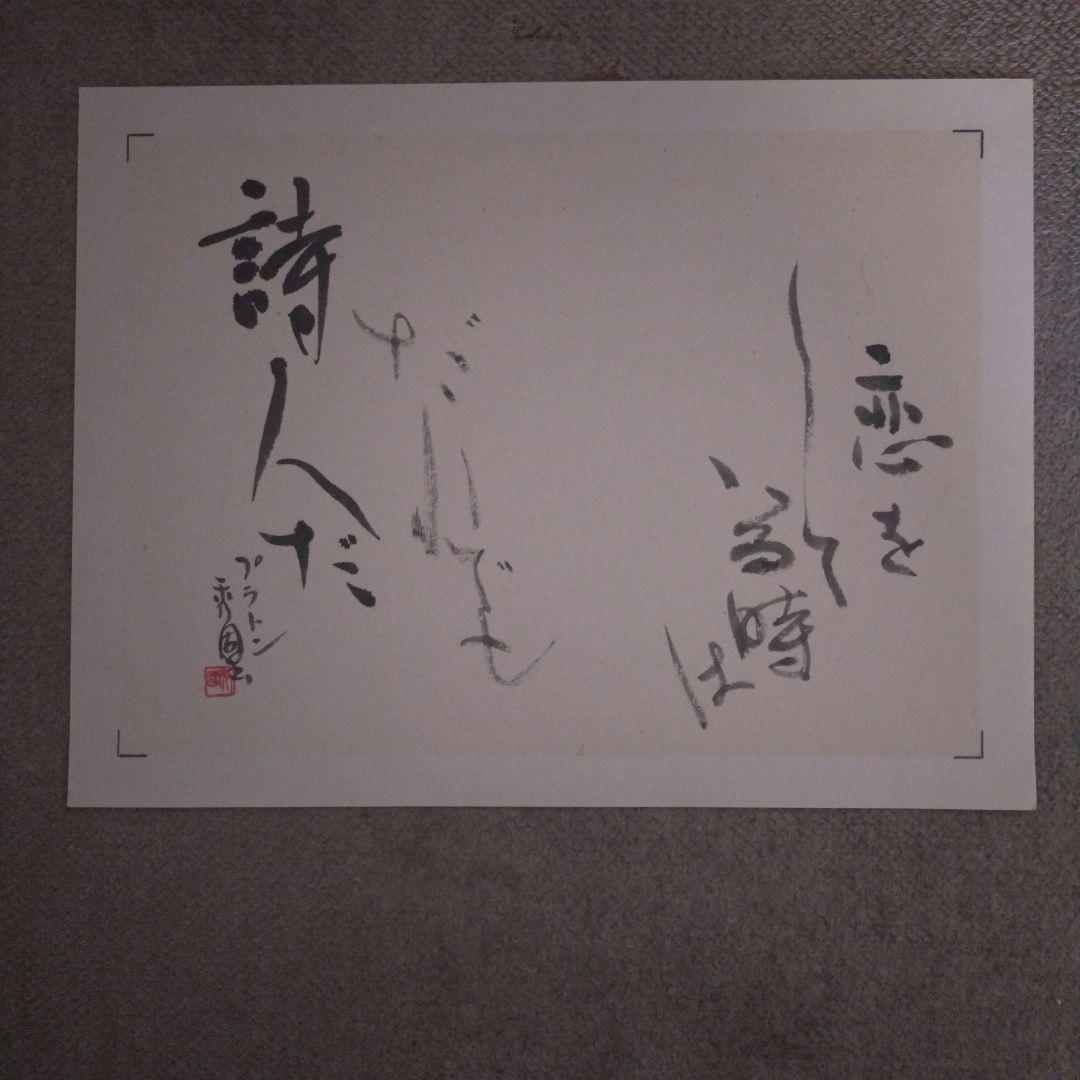 恋を
して
いる時
は
だれでも
詩人だ
プラトン